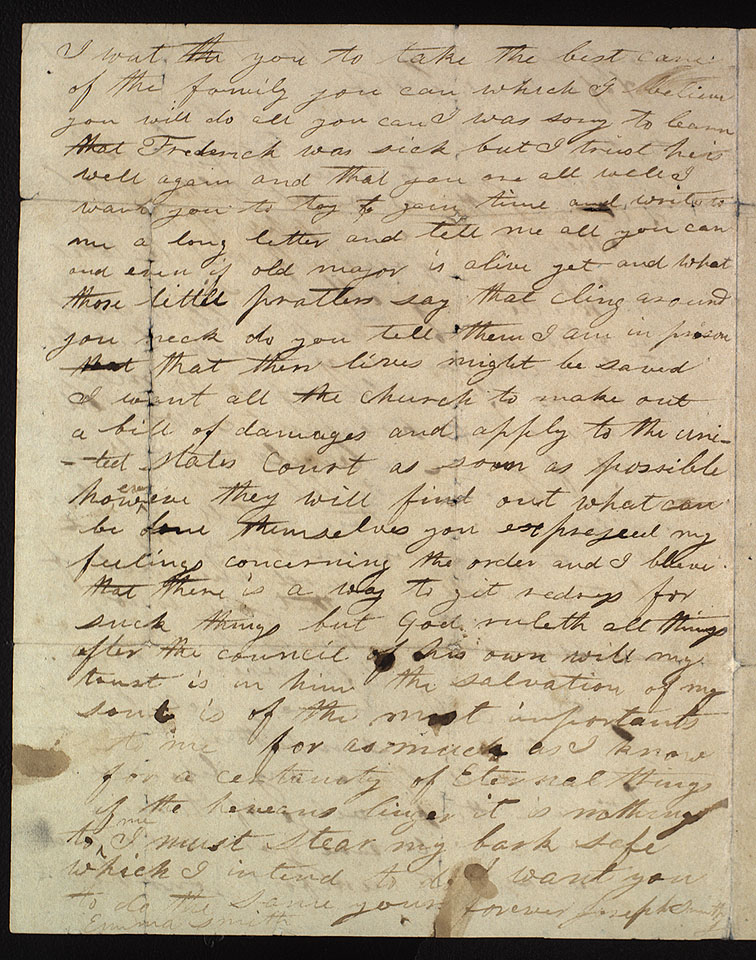 I wut the you to take the best care
of the family you can which I believe
you will do all you can I was sory to learn
that Frederick was sick but I trust he is
well again and that you are all well I
want you to try to gain time and write to
me a long letter and tell me all you can
and even if old major is alive yet and what
those little pratlers say that cling around
you neck do you tell them I am in prison
that that their lives might be saved
I want all the church to make out
a bill of damages and apply to the uni-
-ted states Court as soon as possible
however they will find out what can
be done themselves you expressed my
feelings concerning the order and I blieve
that there is a way to git redress for
such things but God ruleth all things
after the council of his own will my
trust is in him the salvation of my
soul is of the most importants
to me for as much as I know
for a certainty of Eternal things
if the heveans linger it is nothing
to me I must stear my bark safe
which I intend to do I want you
to do the same yours forever Joseph Smith Jr
Emma Smith